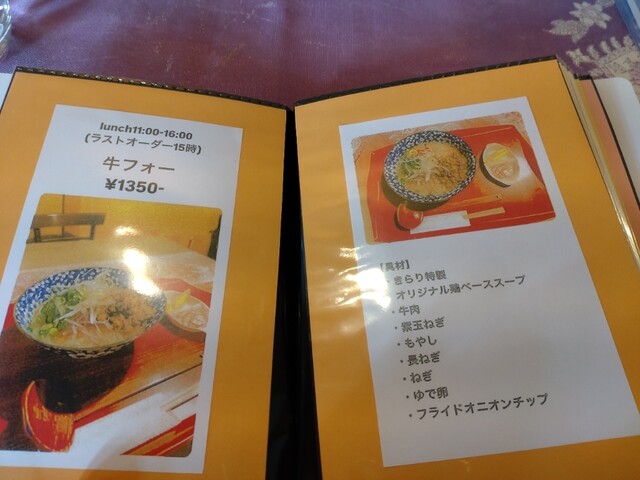 lunch11:00-16:00
(ラストオーダー15時)
牛フォー
¥1350-
【具材】
・きらり特製
オリジナル鶏ベーススープ
・牛肉
・紫玉ねぎ
・もやし
・長ねぎ
・ねぎ
・ゆで卵
・フライドオニオンチップ